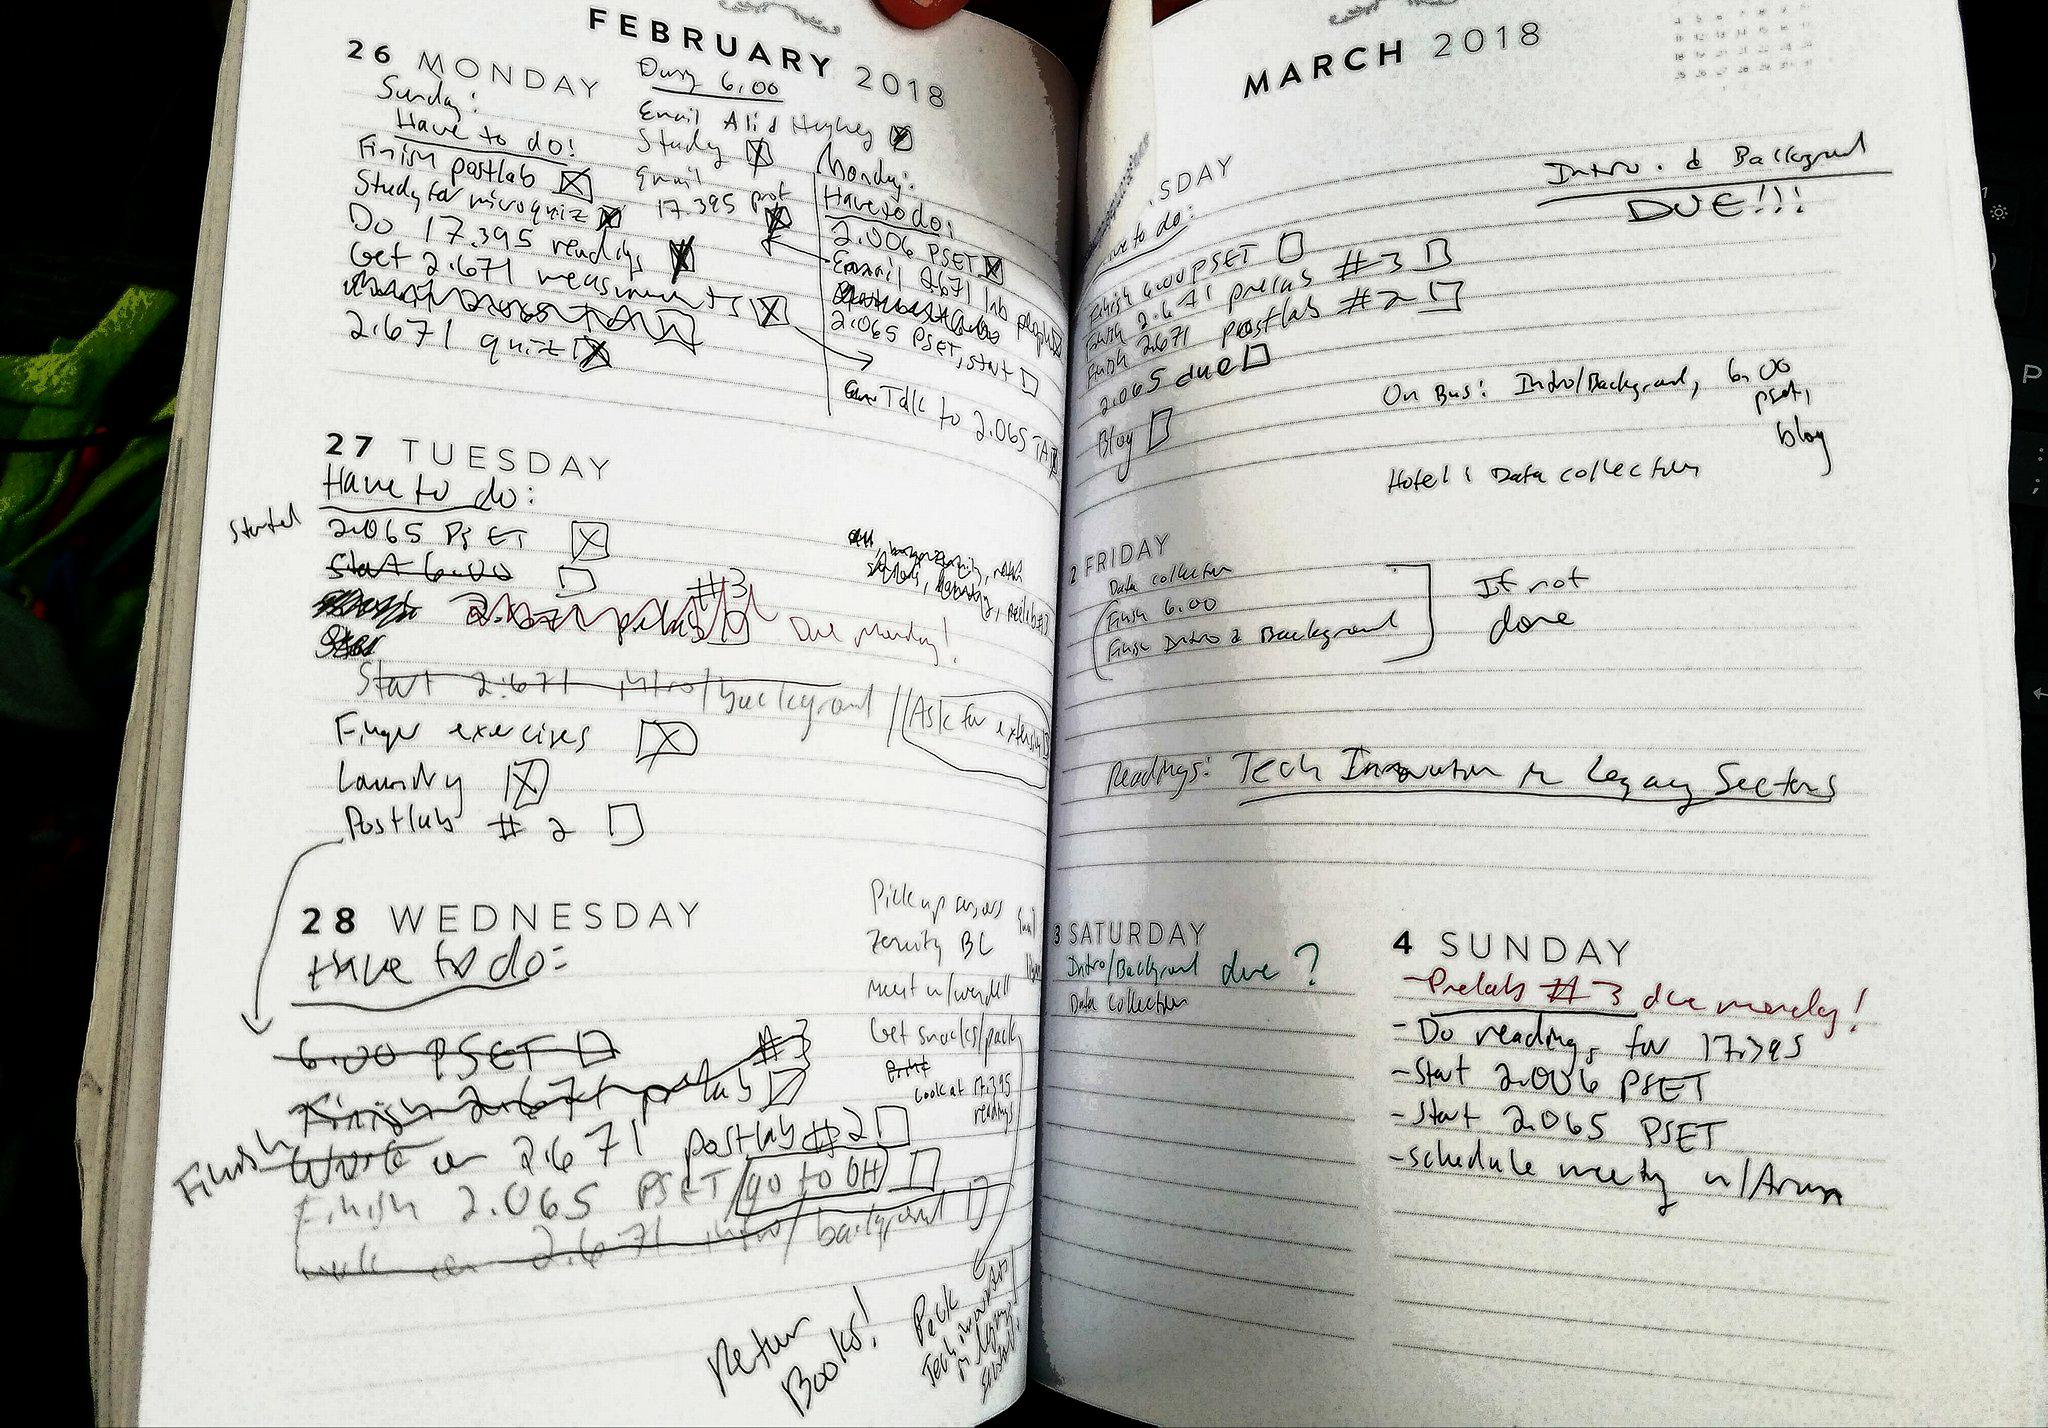 FEBRUARY 2018
26 MONDAY
Sunday:
Have to do!
Finish postlab
Study for microquiz
Do 17.395 readings
Get 2.671 measurements
2.671 quiz
During 6.00
Email Ali & Hughey
Study
Email
17.395 prof
Monday:
Have to do:
2.006 PSET
Email 2.671 lab people
2.065 PSET, start
Talk to 2.065 TA
27 TUESDAY
Have to do:
Started
2.065 PSET
Start 6.00
2.671 prelab #3
Due Monday!
Start 2.671 intro/background // Ask for extension
Finger exercises
Laundry
Postlab #2
28 WEDNESDAY
Have to do:
6.00 PSET
Finish 2.671 prelab #3
Finish Work on 2.671 postlab #2
Finish 2.065 PSET/go to OH
work on 2.671 intro/background
Pick up
BC
meet w/
Get snacks/pack
Print
Look at 17.395
readings
Return
Books!
Pack
Tech
in
legacy
MARCH 2018
SDAY
Have to do:
Intro. & Background
DUE!!!
Finish 6.00 PSET
Finish 2.671 prelab #3
Finish 2.671 postlab #2
2.065 due
Blog
On Bus: Intro/Background, 6.00
pset,
blog
Hotel: Data collection
2 FRIDAY
Data collection
Finish 6.00
Finish Intro & Background
If not
done
Readings: Tech Innovation in Legacy Sectors
3 SATURDAY
Intro/Background due?
Data collection
4 SUNDAY
-Prelab #3 due monday!
-Do readings for 17.395
-Start 2.006 PSET
-Start 2.065 PSET
-schedule meeting w/Arun